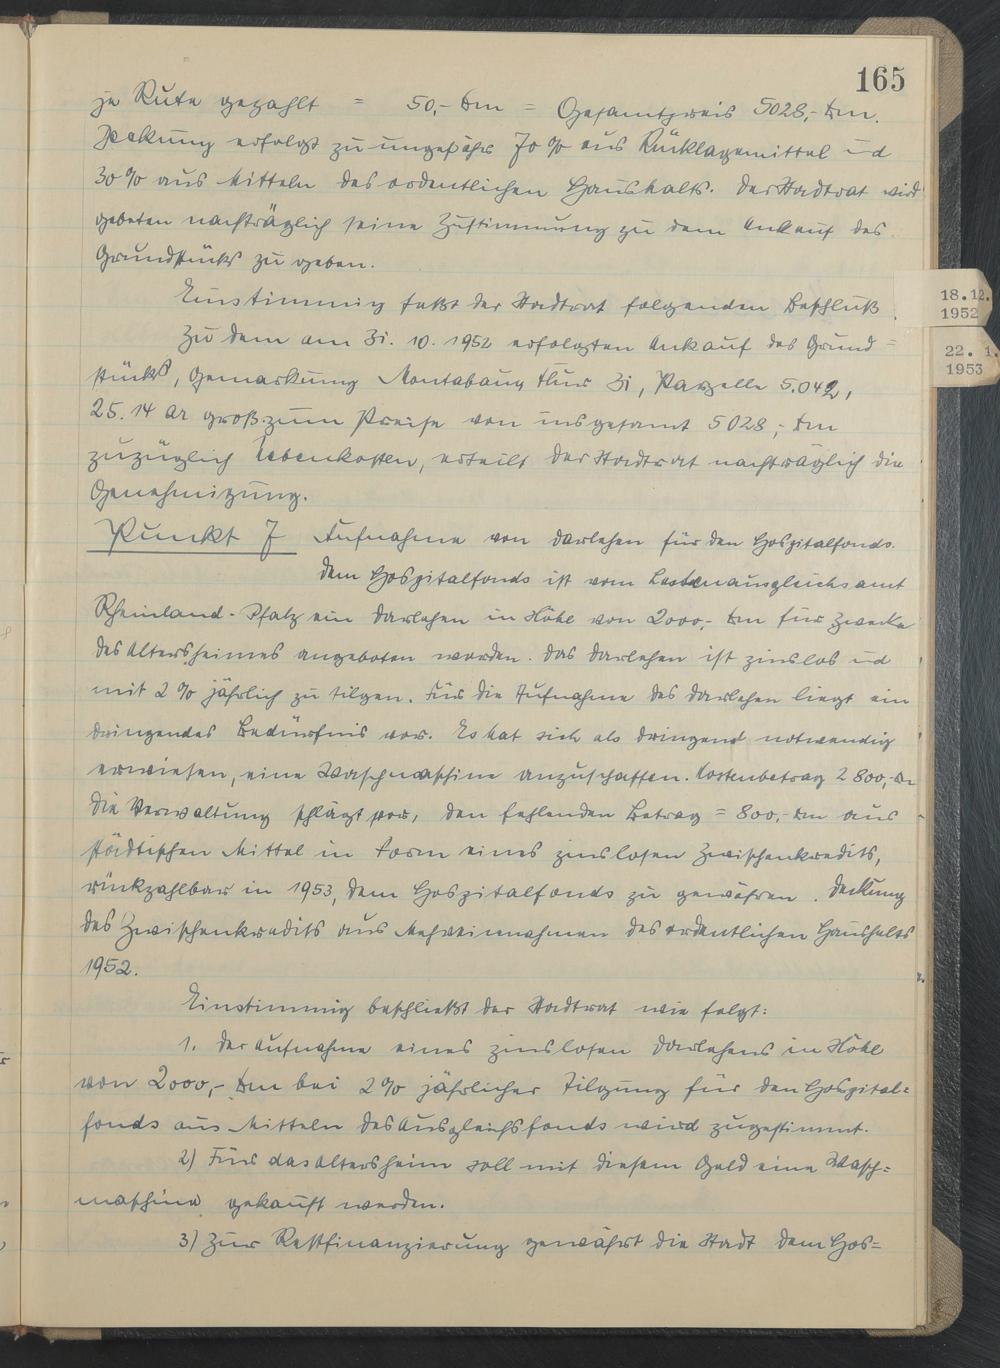 165
je Rute gezahlt = 50,- Dm = Gesamtpreis 5028,- Dm.
Deckung erfolgt zu ungefähr 70 % aus Rücklagemittel und
30 % aus Mitteln des ordentlichen Haushalts. Der Stadtrat wird
gebeten nachträglich seine Zustimmung zu dem Ankauf des
Grundstücks zu geben.
Einstimmig faßt der Stadtrat folgenden Beschluß.
Zu dem am 31. 10. 1952 erfolgten Ankauf des Grund=
stücks, Gemarkung Montabaur Flur 31, Parzelle 5042,
25.14 Ar groß zum Preise von insgesamt 5028,- Dm
zuzüglich Nebenkosten, erteilt der Stadtrat nachträglich die
Genehmigung.
18.12.
1952
22. 1.
1953
Punkt 7 Aufnahme von Darlehen für den Hospitalfonds.
Dem Hospitalfonds ist vom Lastenausgleichsamt
Rheinland-Pfalz ein Darlehen in Höhe von 2000,- Dm für Zwecke
des Altersheimes angeboten worden. Das Darlehen ist zinslos und
mit 2 % jährlich zu tilgen. Für die Aufnahme des Darlehen liegt ein
dringendes Bedürfnis vor. Es hat sich als dringend notwendig
erwiesen, eine Waschmaschine anzuschaffen. Kostenbetrag 2800,- Dm
Die Verwaltung schlägt vor, den fehlenden Betrag = 800,- Dm aus
städtischen Mittel in Form eines zinslosen Zwischenkredits,
rückzahlbar in 1953, dem Hospitalfonds zu gewähren. Deckung
des Zwischenkredits aus Mehreinnahmen des ordentlichen Haushalts
1952.
Einstimmig beschließt der Stadtrat wie folgt:
1. Der Aufnahme eines zinslosen Darlehens in Höhe
von 2000,- Dm bei 2 % jährlicher Tilgung für den Hospital=
fonds aus Mitteln des Ausgleichsfonds wird zugestimmt.
2) Für das Altersheim soll mit diesem Geld eine Wasch=
maschine gekauft werden.
3) Zur Restfinanzierung gewährt die Stadt dem Hos=